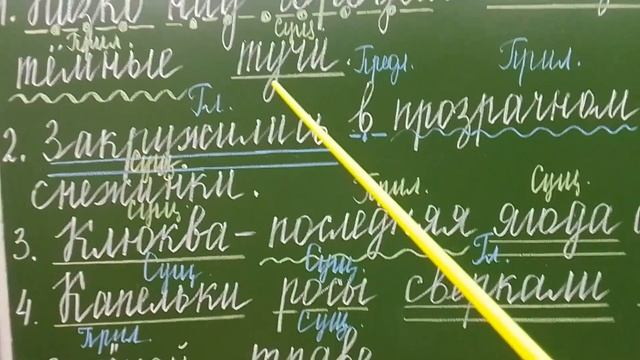 1. Низко над
Прил. Сущ.
тёмные тучи. Предл. Прил.
Гл.
2. Закружились в прозрачном
Сущ.
снежинки.
Сущ. Прил. Сущ.
3. Клюква – последняя ягода
Сущ. Сущ. Гл.
4. Капельки росы сверкали
Прил. Сущ.
траве